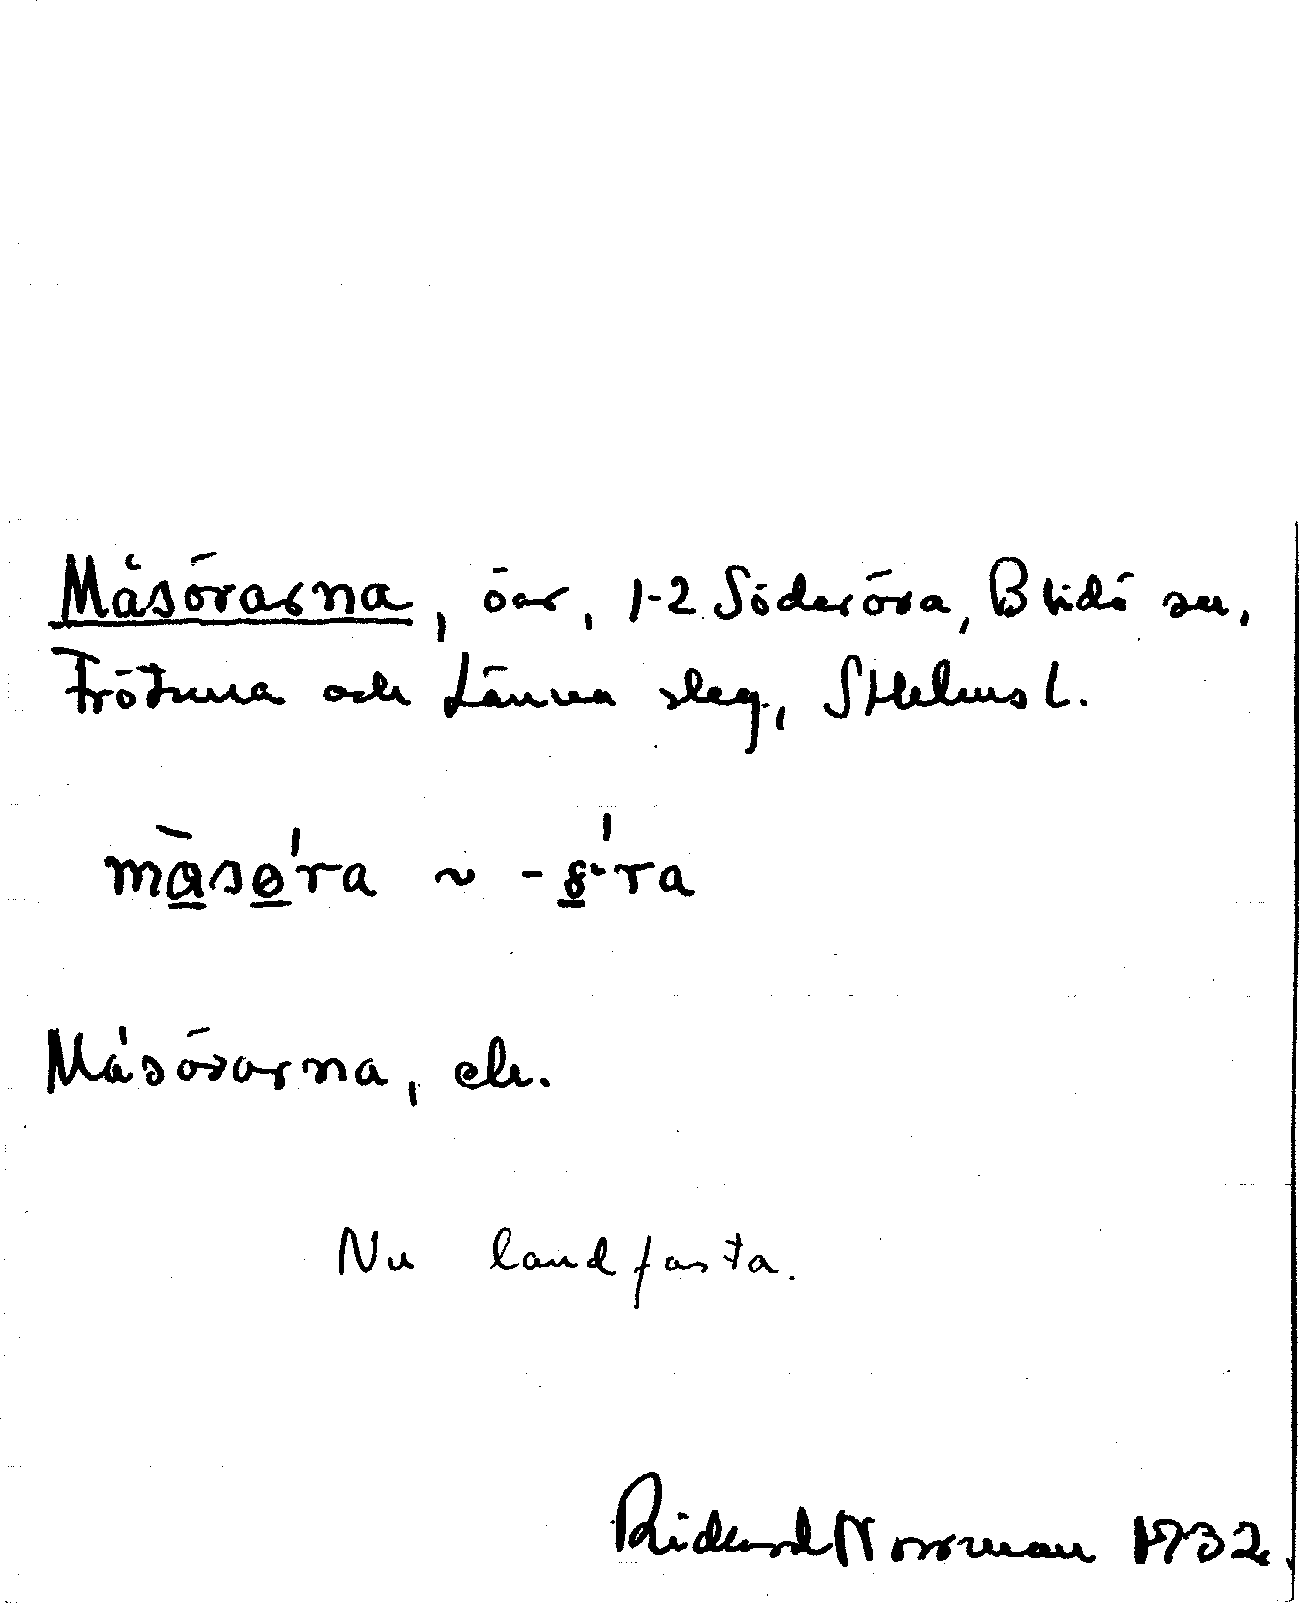 Måsörarna, öar, 1-2 Söderöra, Blidö sn,
Frötuna och Länna slag, SthlmsL.
måsøra ~ -ra
Måsörarna, ek.
Nu landfasta.
Rickard Norrman 1932.